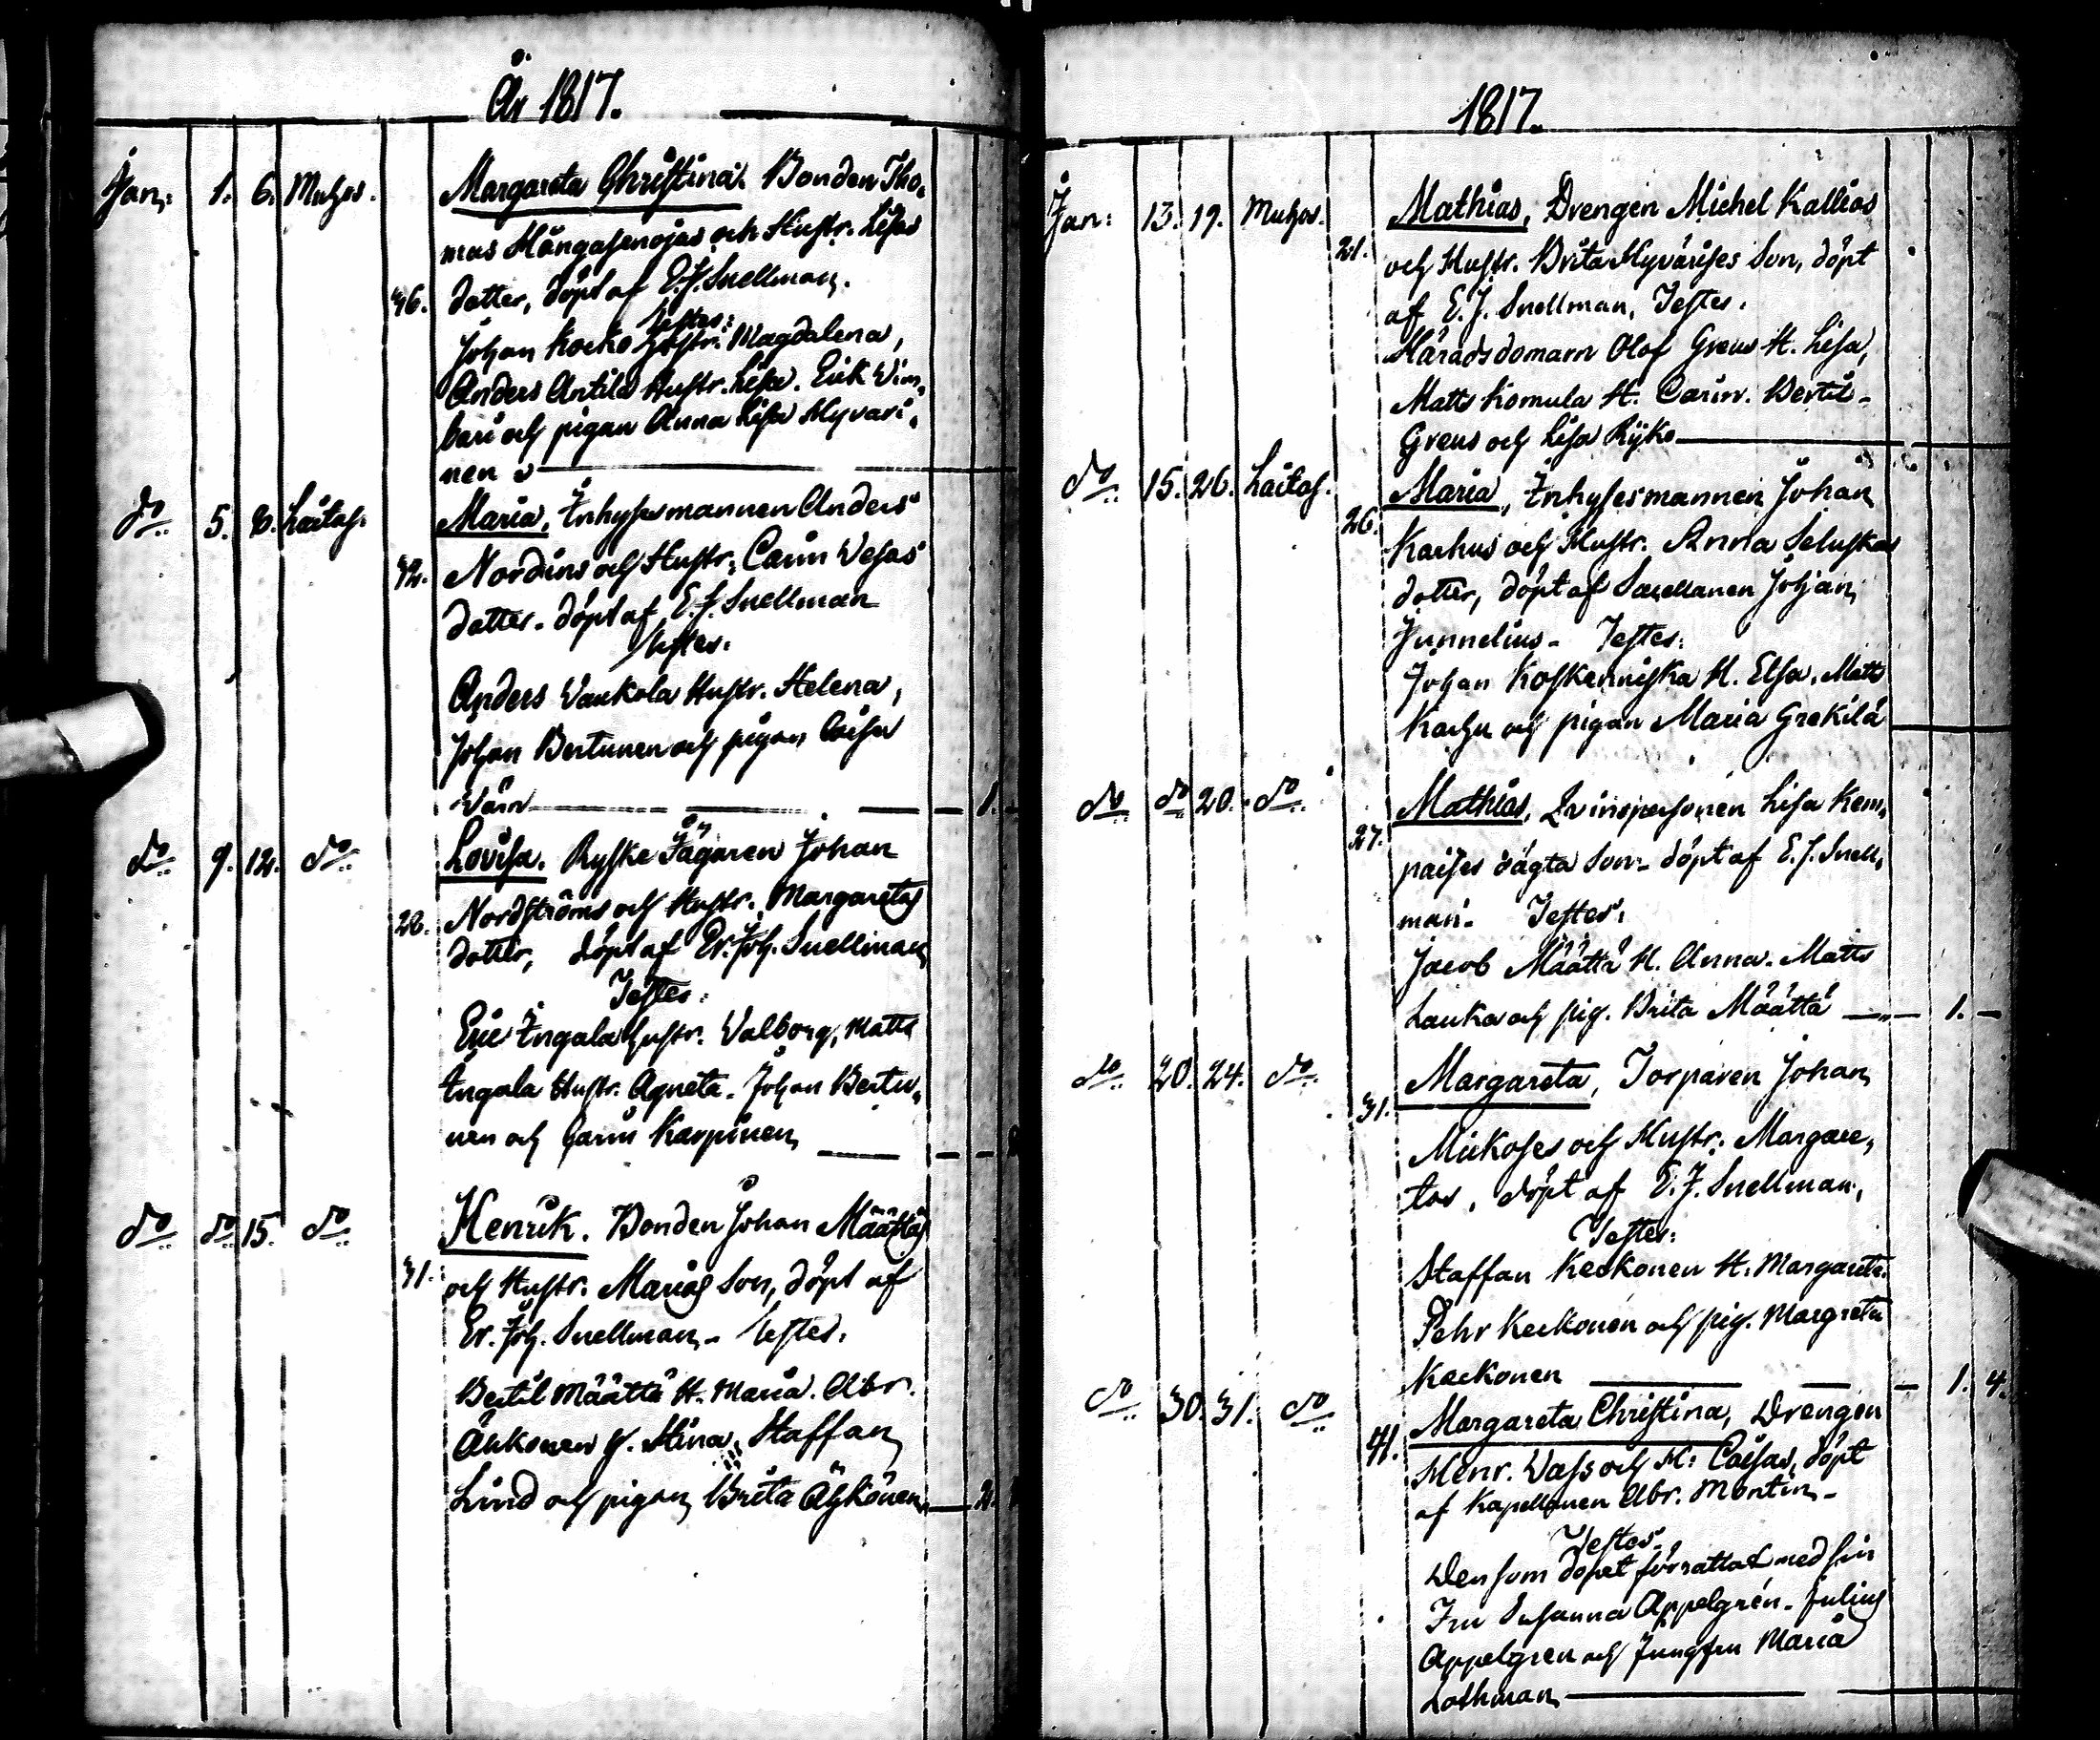 År 1817.
Jan: 1. 6. Muhos. Margareta Christina. Bonden Tho,
mas Mångasenojas och Hustr. Lisas
36. dotter, döpt af E. J. Snellman.
Testes:
Johan Kocko Hustr. Magdalena,
Anders Antila Hustr. Lisa. Erik Wim,
bari och pigan Anna Lisa Hyvari,
nen
do 5. 8. Laitas. Maria, Inhysesmannen Anders
32. Nordins och Hustr. Carin Vesas
dotter. döpt af E. J. Snellman
Testes.
Anders Vankola Hustr. Helena,
Johan Bertunen och pigan Caisa
Wärr 1.
do 9. 12. do Lovisa. Ryske Jägaren Johan
28. Nordströms och Hustr. Margaretas
dotter, döpt af Er. Joh. Snellman
Testes.
Eric Ingala hustr. Valborg, Matts
Ingala Hustr. Agneta. Johan Bertu,
nen och Carin Karpinen
do do 15. do Henrik. Bonden Johan Määttäs
31. och Hustr. Marias Son, döpt af
Er. Joh. Snellman. Testes.
Bertil Määttä H. Maria. Abr.
Ähkönen H. Stina, Staffan
Lind och pigan Brita Ähkönen 2.
1817.
Jan: 13. 19. Muhos. Mathias, Drengen Michel Kallios
21. och Hustr. Brita Hyvärises Son, döpt
af E. J. Snellman, Testes.
Häradsdomarn Olof Greus H. Lisa,
Matts Komula H. Carin. Bertil
Greus och Lisa Ryko
do 15. 26. Laitas. Maria, Inhysesmannen Johan
26. Karhus och Hustr. Anna Seluskas
dotter, döpt af Sacellanen Johan
Junnelius. Testes:
Johan Koskenniska H. Elsa, Matts
Karhu och pigan Maria Grekilä
do do 20. do Mathias, Qvinspersonen Lisa Kem,
27. paises oägta Son. döpt af E. J. Snell,
man. Testes.
Jacob Määttä H. Anna. Matts
Lauka och pig. Brita Määttä 1.
do 20. 24. do Margareta, Torparen Johan
31. Mickoses och Hustr. Margare,
tas, döpt af E. J. Snellman,
Testes:
Staffan Keckonen H. Margareta.
Pehr Keckonen och pig. Margreta
Keckonen 1. 4.
do 30. 31. do Margareta Christina, Drengen
41. Henr. Vass och H. Caisas, döpt
af Kapellanen Abr. Montin.
Testes.
Den som döpet förrättat med sin
Fru Susanna Appelgrén. Julius
Appelgren och Jungfru Maria
Lothman